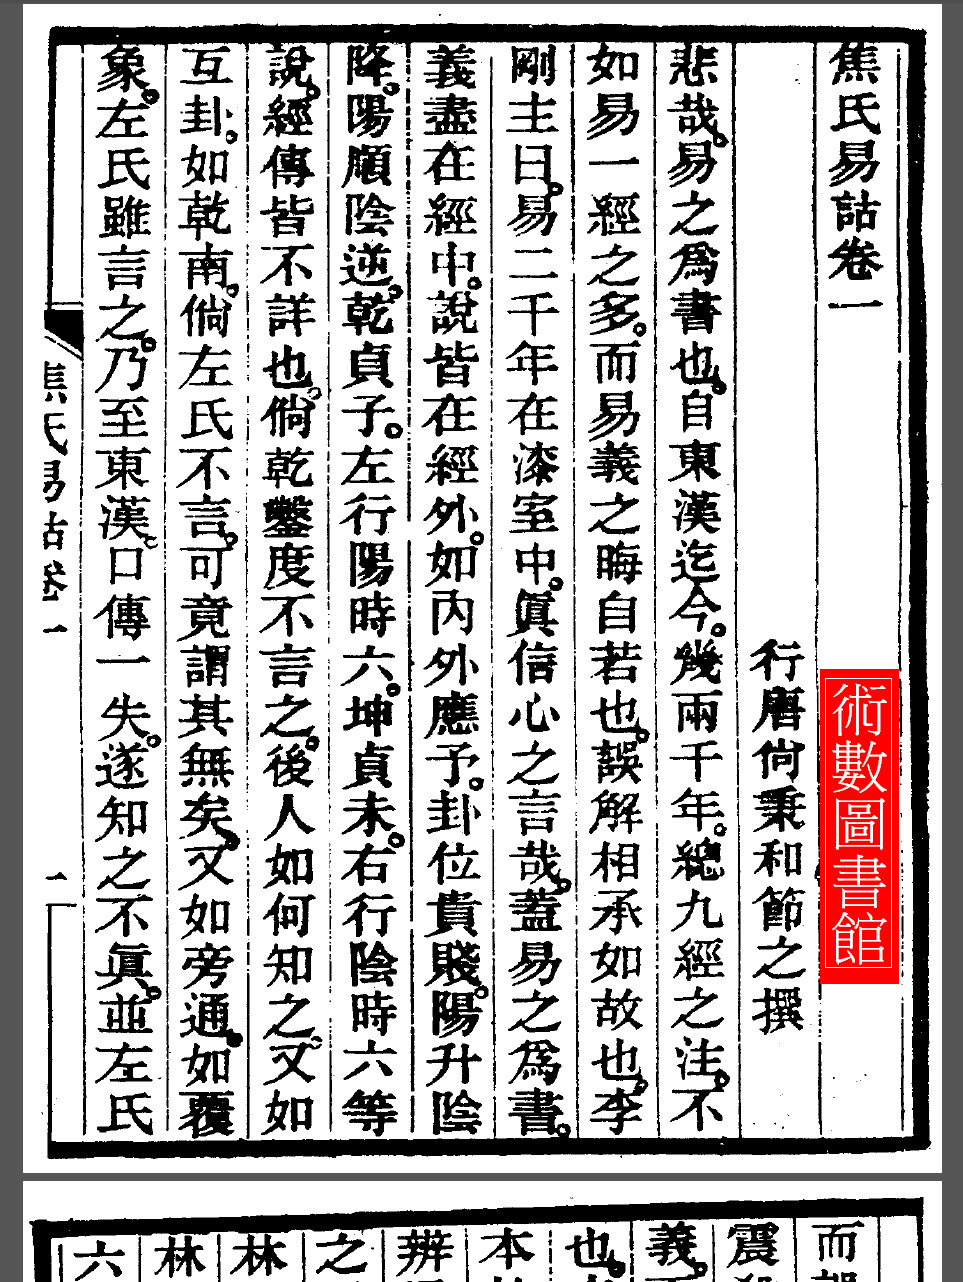 焦氏易詁卷一
行唐尙秉和節之撰
悲哉。易之爲書也。自東漢迄今。幾兩千年。總九經之注。不
如易一經之多。而易義之晦自若也。誤解相承如故也。李
剛主曰。易二千年在漆室中。眞信心之言哉。蓋易之爲書。
義盡在經中。說皆在經外。如內外應予。卦位貴賤。陽升陰
降。陽順陰逆。乾貞子。左行陽時六。坤貞未。右行陰時六等
說。經傳皆不詳也。倘乾鑿度不言之。後人如何知之。又如
互卦。如乾南。倘左氏不言。可竟謂其無矣。又如旁通。如覆
象。左氏雖言之。乃至東漢。口傳一失。遂知之不眞。並左氏
焦氏易詁卷一
一
術數圖書館
而
震
義。
也。
本
辨
之
林
林
六